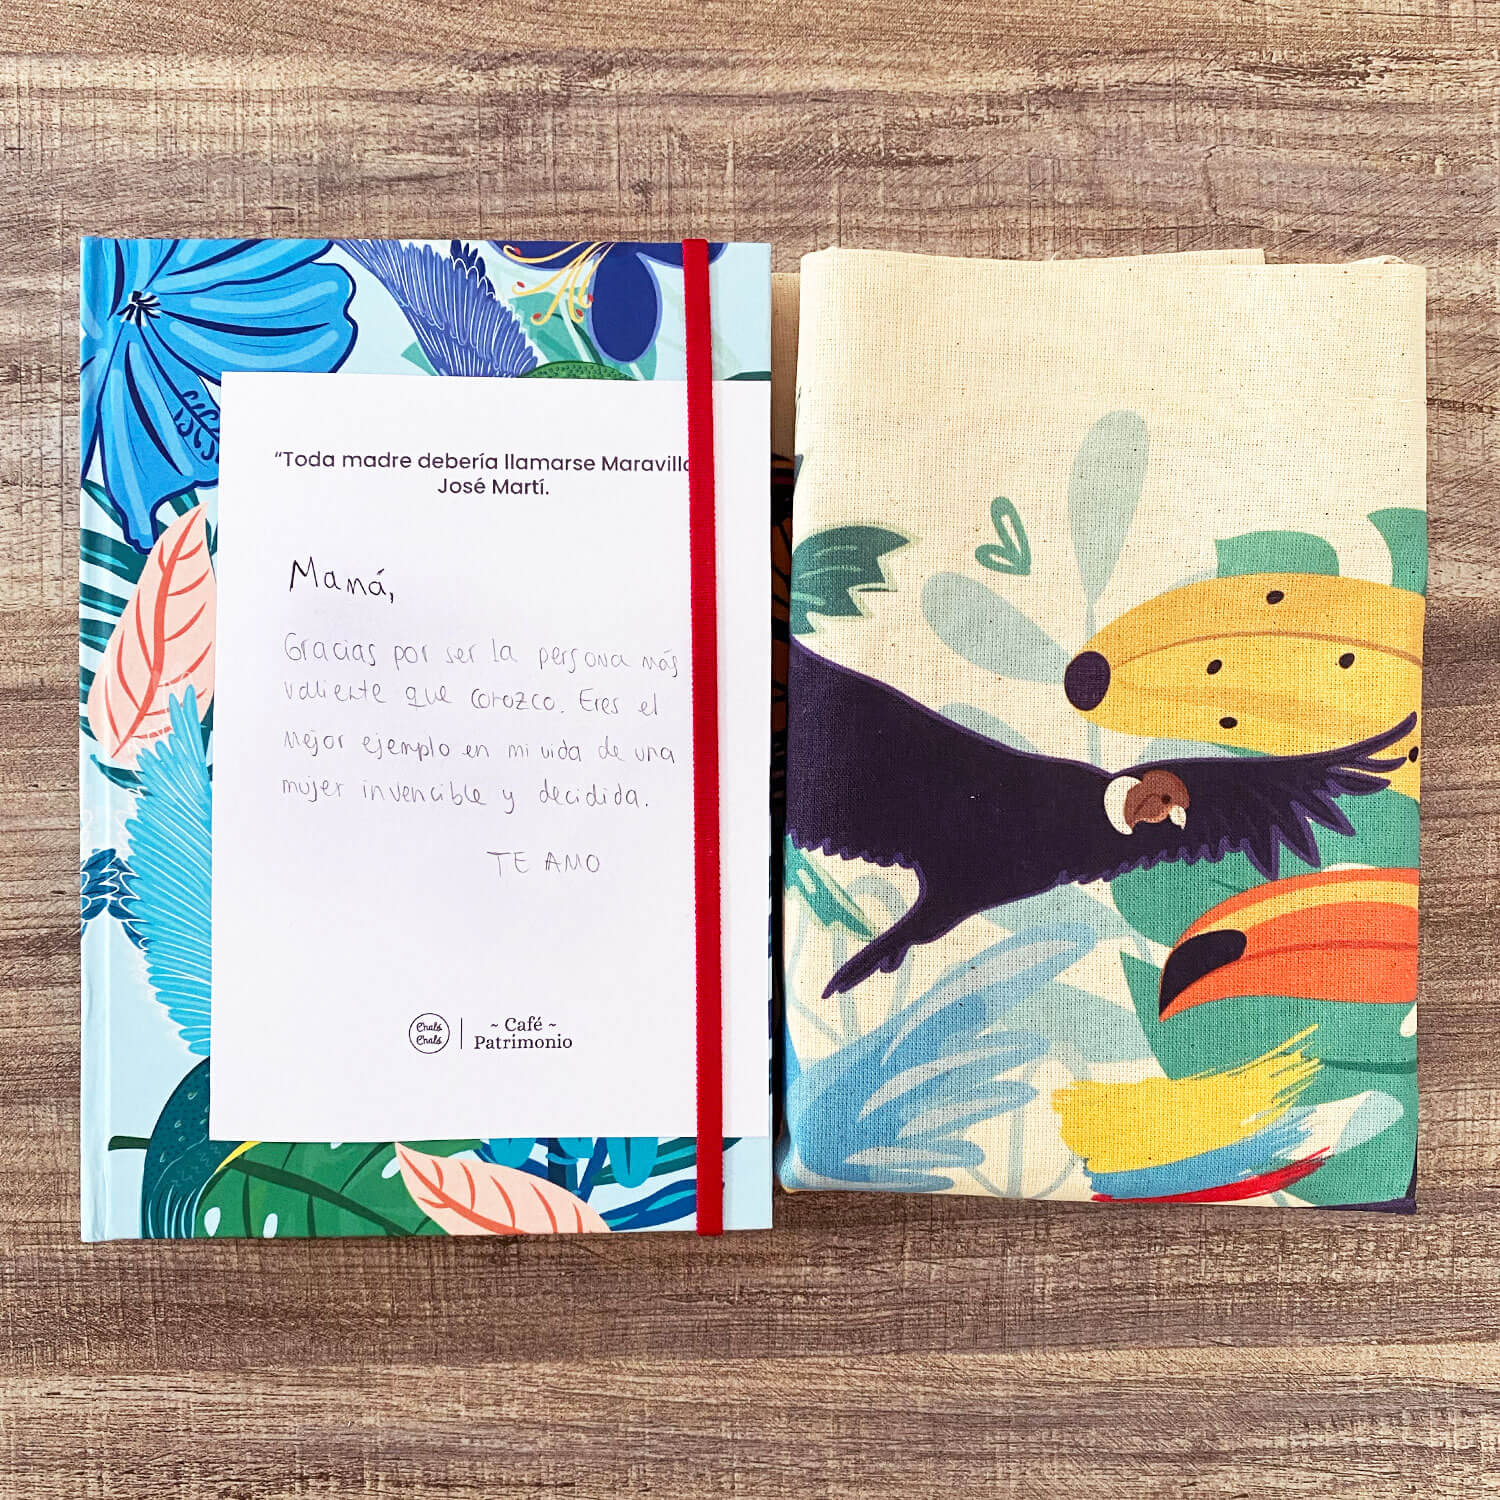 “Toda madre debería llamarse Maravilla
José Martí.
Mamá,
Gracias por ser la persona más
valiente que corozco. Eres el
mejor ejemplo en mi vida de una
mujer invencible y decidida.
TE AMO
Chals Chals
~ Café ~
Patrimonio